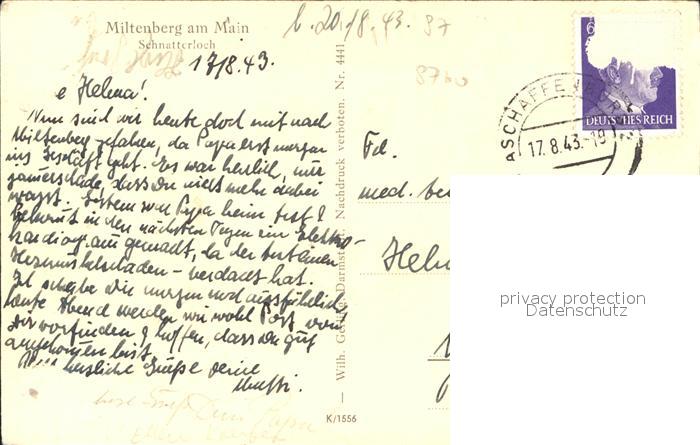 Miltenberg am Main
Schnatterloch
17/8.43.
b. 20./8.43.
e Helma!
Nun sind wir heute doch mit nach
Miltenberg gefahren, da Papa erst morgen
ins Geschäft geht. Es war herrlich, nur
jammerschade, dass Du nicht mehr dabei
warst. Gestern war Papa beim
in den nächsten Tagen ein Elektro-
kardiogramm gemacht, da der
Herzmuskelschaden - verdacht hat.
Ich schreibe Dir morgen noch ausführlich.
Heute Abend werden wir wohl Post von
Dir vorfinden & hoffen, dass Du gut
angekommen bist.
herzliche Grüße Deine
Mutti.
Wilh. Gerling, Darmstadt. Nachdruck verboten. Nr. 4441
K/1556
6
DEUTSCHES REICH
ASCHAFFE
17.8.43.-19
Frl.
med.
Helm
privacy protection
Datenschutz